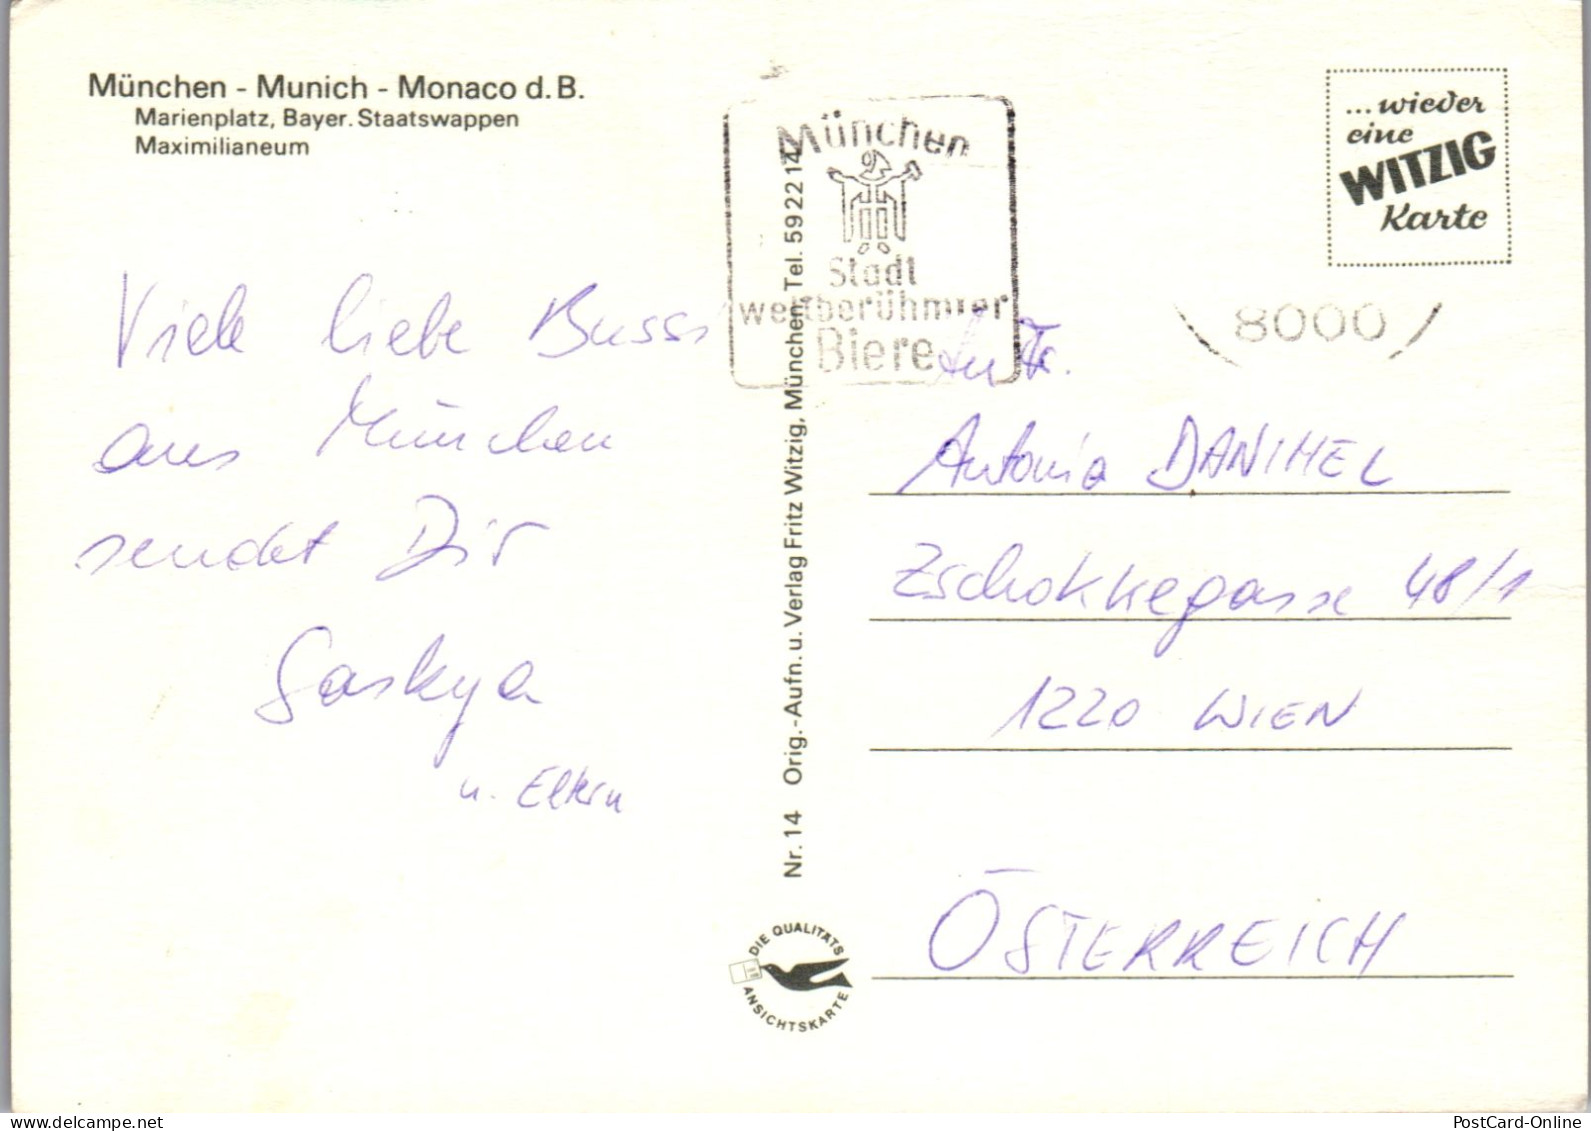 München - Munich - Monaco d. B.
Marienplatz, Bayer. Staatswappen
Maximilianeum
München
Stadt
weltberühmter
Biere
... wieder
eine
WITZIG
Karte
8000
Viele liebe Bussi
aus München
sendet Dir
Saskya
u. Eltern
Nr. 14 Orig.-Aufn. u. Verlag Fritz Witzig, München, Tel. 59 22 14
An Fr.
Antonia DANIHEL
Zschokkegasse 48/1
1220 WIEN
ÖSTERREICH
DIE QUALITÄTS
ANSICHTSKARTE
PostCard-Online